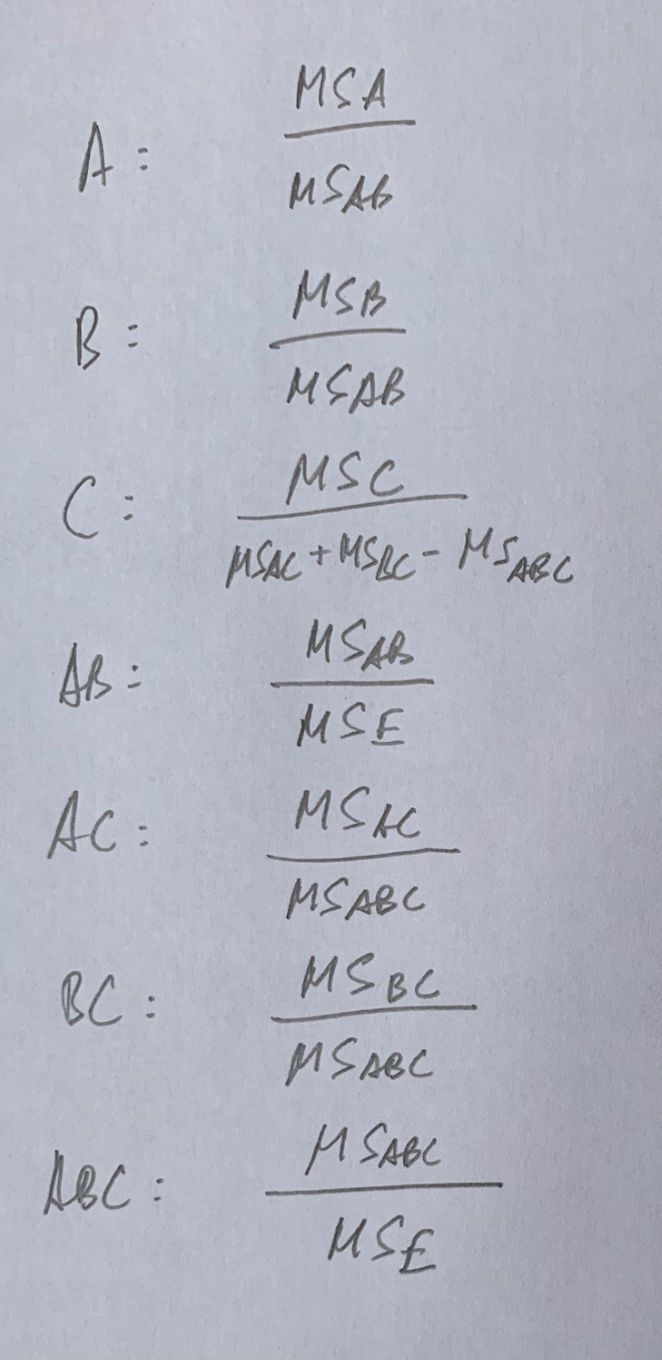 A: MSA / MSAB
B: MSB / MSAB
C: MSC / MSAC + MSBC - MSABC
AB: MSAB / MSE
AC: MSAC / MSABC
BC: MSBC / MSABC
ABC: MSABC / MSE